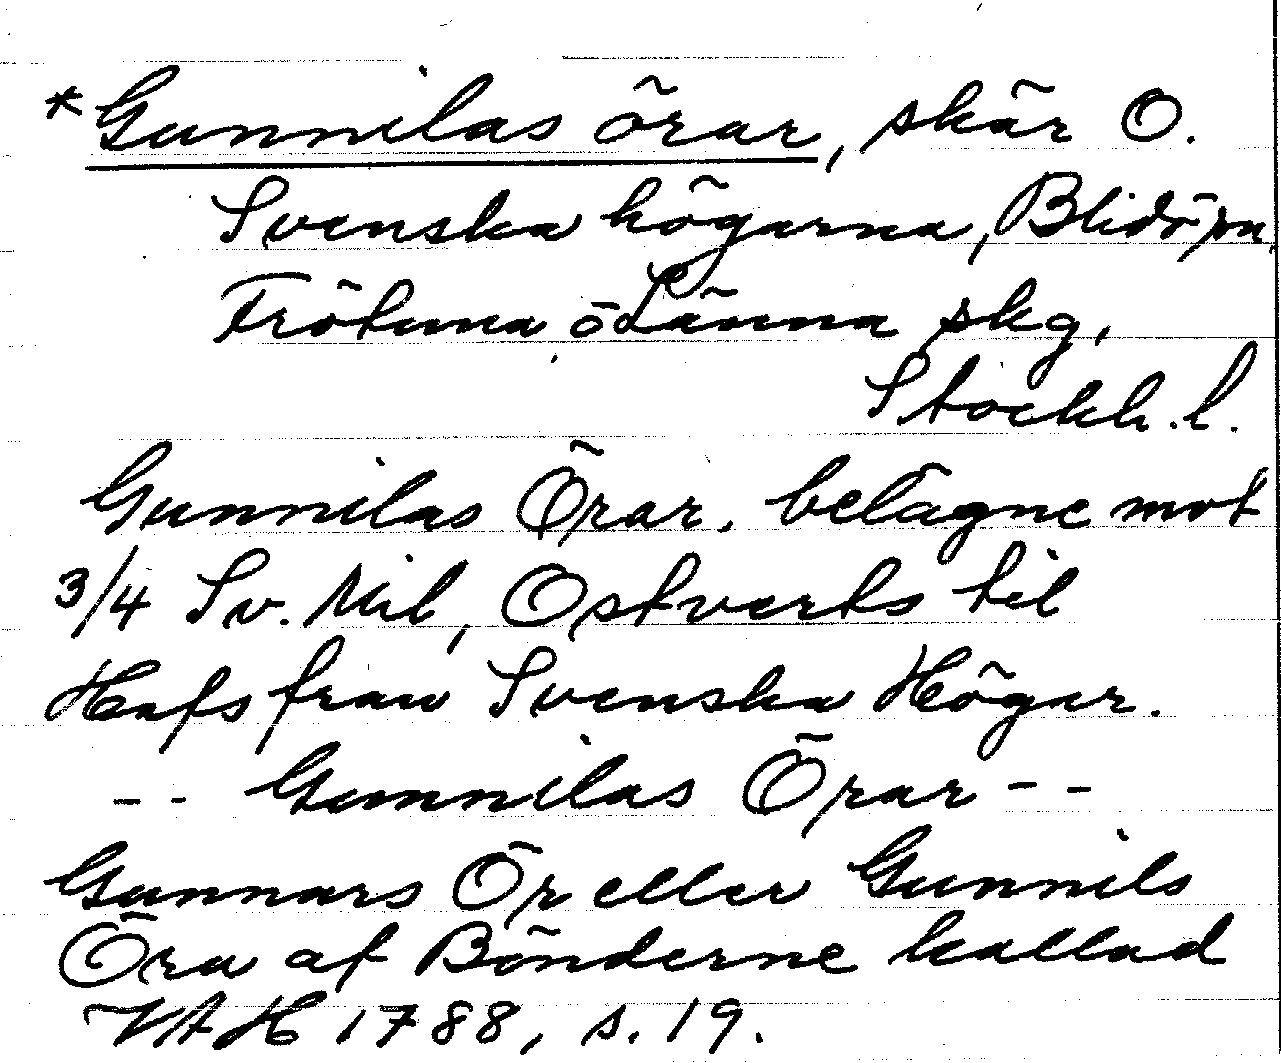 *Gunnilas örar, skär O.
Svenska högarna, Blidö sn,
Frötuna o Länna skg,
Stockh. l.
Gunnilas Örar, belägne mot
3/4 Sv. Mil, Ostverts til
Hafs fran Svenska Högar.
-- Gunnilas Örar --
Gunnars Ör eller Gunnils
Öra af Bönderne kallad
VAH 1788, s. 19.